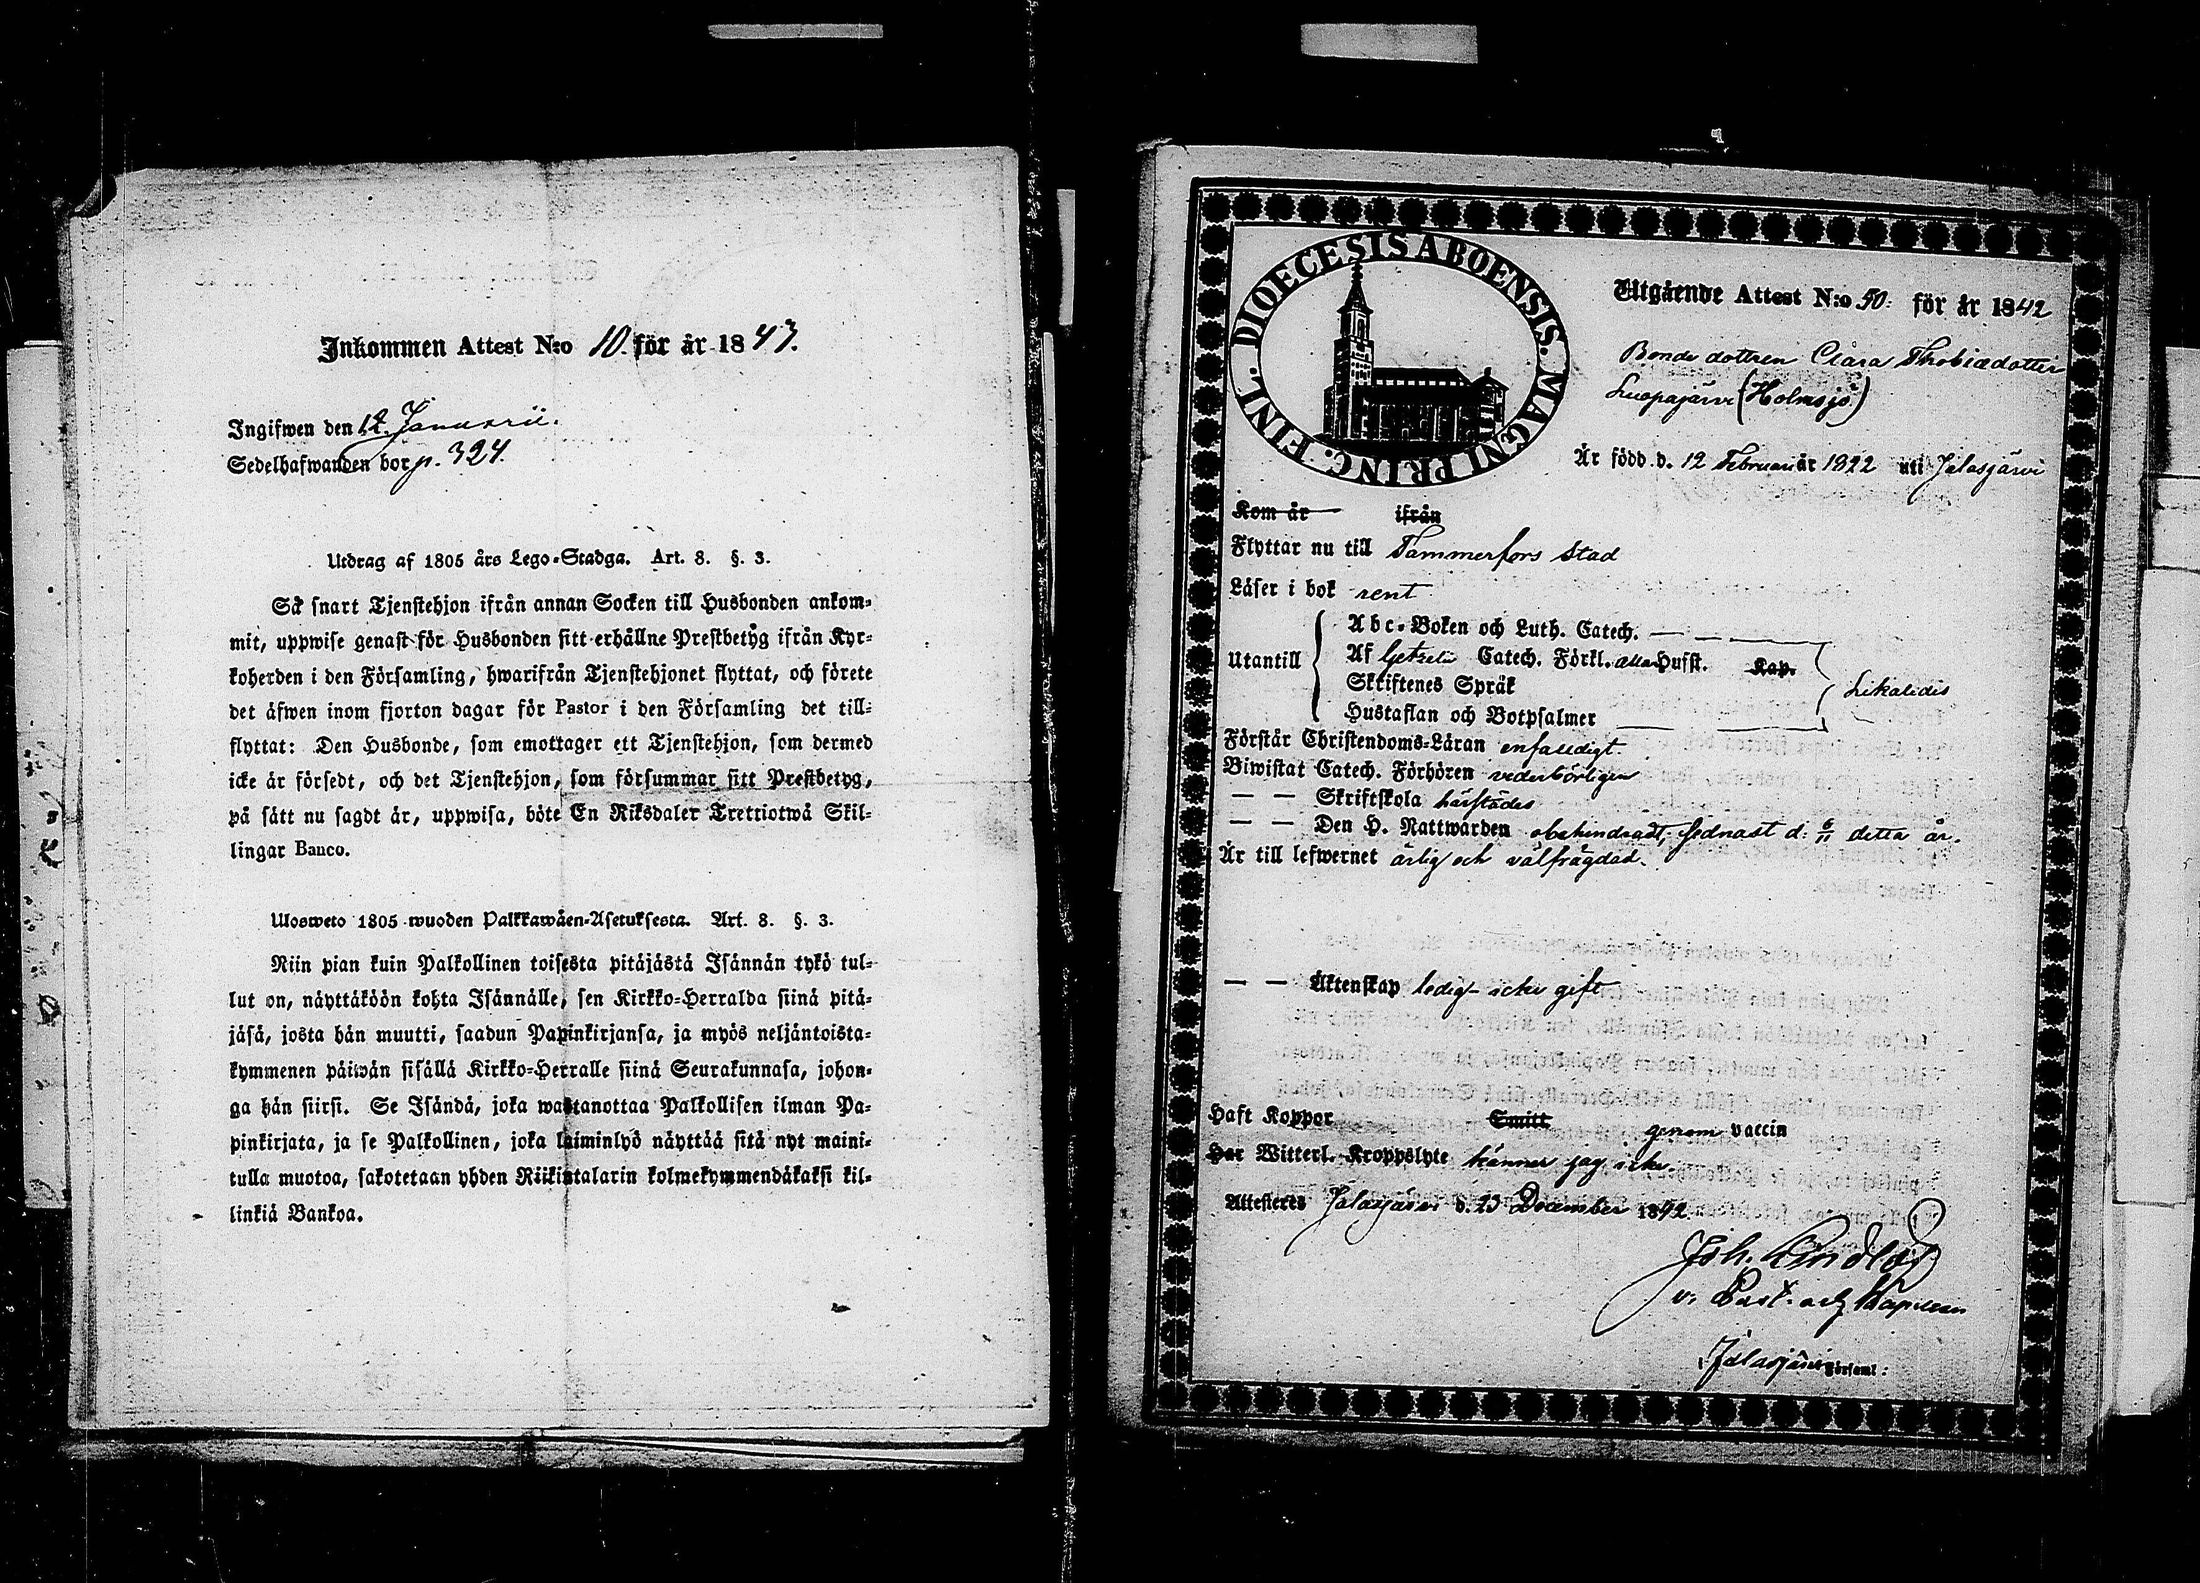 Inkommen Attest N:o 10. för år 1843.
Ingifwen den 12. Januarii.
Sedelhafwanden bor p. 324.
Utdrag af 1805 års Lego-Stadga. Art. 8. §. 3.
Så snart Tjenstehjon ifrån annan Socken till Husbonden ankom-
mit, uppwise genast för Husbonden sitt erhållne Prestbetyg ifrån Kyr-
koherden i den Församling, hwarifrån Tjenstehjonet flyttat, och förete
det äfwen inom fjorton dagar för Pastor i den Församling det till-
flyttat: Den Husbonde, som emottager ett Tjenstehjon, som dermed
icke är försedt, och det Tjenstehjon, som försummar sitt Prestbetyg,
på sätt nu sagdt är, uppwisa, böte En Riksdaler Trettiotwå Skil-
lingar Banco.
Ulosweto 1805 wuoden Palkkawäen-Asetuksesta. Art. 8. §. 3.
Niin pian kuin Palkollinen toisesta pitäjästä Isännän tykö tul-
lut on, näyttäköön kohta Isännälle, sen Kirkko-Herralda siinä pitä-
jäsä, josta hän muutti, saadun Papinkirjansa, ja myös neljäntoista-
kymmenen päiwän sisällä Kirkko-Herralle siinä Seurakunnasa, johon-
ga hän siirsi. Se Isändä, joka wastanottaa Palkollisen ilman Pa-
pinkirjata, ja se Palkollinen, joka laiminlyö näyttää sitä nyt maini-
tulla muotoa, sakotetaan yhden Riikintalarin kolmekymmendäkaksi kil-
linkiä Bankoa.
DIOECESIS ABOENSIS. MAGNI PRINC. FINL.
Utgående Attest N:o 50. för år 1842
Bonde dottren Clara Thobiædotter
Luopajärvi (Holmsjö)
Är född d. 12 Februari år 1822 uti Jalasjärvi
Kom år ifrån
Flyttar nu till Tammerfors Stad
Läser i bok rent
Utantill
Abc-Boken och Luth. Catech.
Af Getzelii Catech. Förkl. alla Hufst. Kap.
Skriftenes Språk
Hustaflan och Botpsalmer
Likaledes
Förstår Christendoms-Läran enfaldigt.
Biwistat Catech. Förhören vederbörligen
— — Skriftskola härstädes
— — Den H. Nattwarden obehindradt, sednast d. 6/11 detta år.
Är till lefwernet ärlig och välfrägdad.
— — Äktenskap ledig icke gift
Haft Koppor Smitt genom vaccin
Har Witterl. Kroppslyte känner jag icke.
Attesteres Jalasjärvi d. 23 December 1842.
Joh.
v. Past. och Kapellan
i Jalasjärvi Församl: